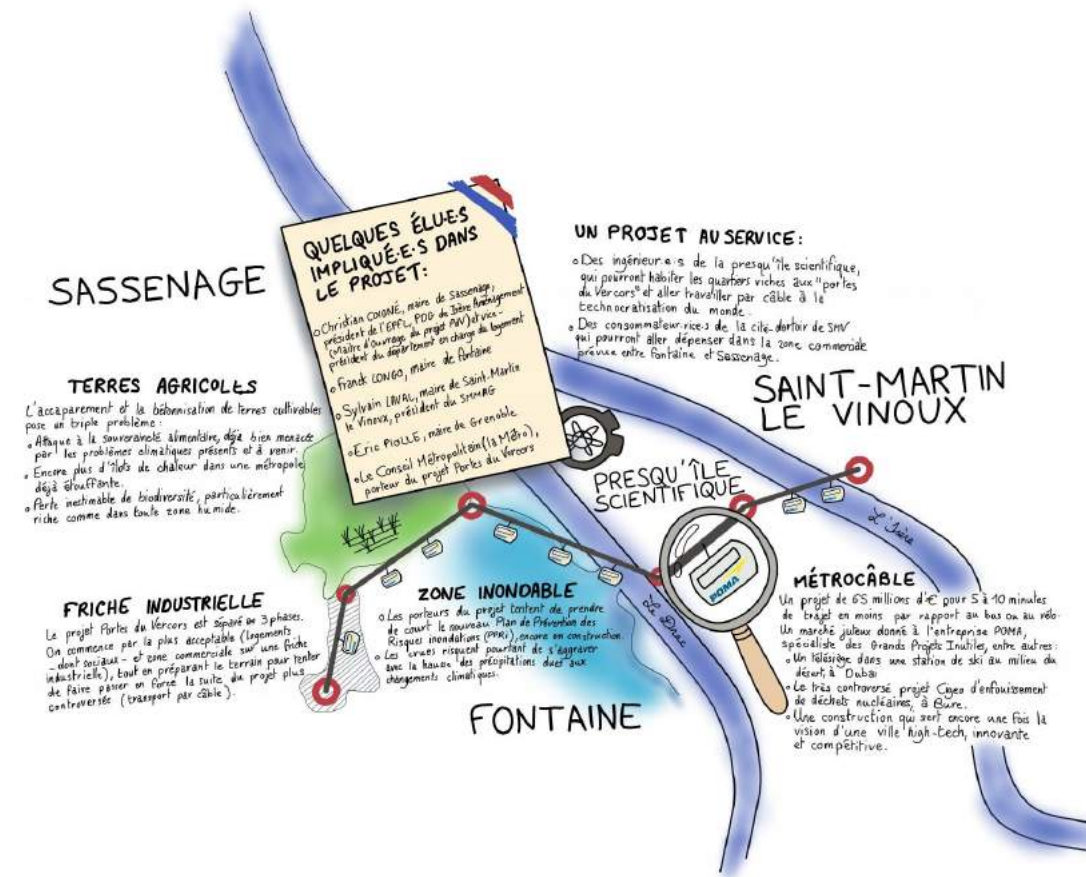 SASSENAGE
QUELQUES ÉLU·E·S
IMPLIQUÉ·E·S DANS
LE PROJET:
Christian COIGNÉ, maire de Sassenage,
président de l'EPFL, PDG de Isère Aménagement
(Maître d'Ouvrage du projet PdV) et vice-
président du département en charge du logement
Franck LONGO, maire de Fontaine
Sylvain LAVAL, maire de Saint-Martin
le Vinoux, président du SMMAG
Eric PIOLLE, maire de Grenoble
Le Conseil Métropolitain (la Métro),
porteur du projet Portes du Vercors
UN PROJET AU SERVICE:
Des ingénieur·e·s de la presqu'île scientifique,
qui pourront habiter les quartiers riches aux "portes
du Vercors" et aller travailler par câble à la
technocratisation du monde.
Des consommateur·rice·s de la cité-dortoir de SMV
qui pourront aller dépenser dans la zone commerciale
prévue entre Fontaine et Sassenage.
TERRES AGRICOLES
L'accaparement et la bétonnisation de terres cultivables
pose un triple problème :
Attaque à la souveraineté alimentaire, déjà bien menacée
par les problèmes climatiques présents et à venir.
Encore plus d'îlots de chaleur dans une métropole
déjà étouffante.
Perte inestimable de biodiversité, particulièrement
riche comme dans toute zone humide.
SAINT-MARTIN
LE VINOUX
PRESQU'ÎLE
SCIENTIFIQUE
L'Isère
POMA
Le Drac
FRICHE INDUSTRIELLE
Le projet Portes du Vercors est séparé en 3 phases.
On commence par la plus acceptable (logements
- dont sociaux - et zone commerciale sur une friche
industrielle), tout en préparant le terrain pour tenter
de faire passer en force la suite du projet plus
controversée (transport par câble).
ZONE INONDABLE
Les porteurs du projet tentent de prendre
de court le nouveau Plan de Prévention des
Risques inondations (PPRi), encore en construction.
Les crues risquent pourtant de s'aggraver
avec la hausse des précipitations dues aux
changements climatiques.
MÉTROCÂBLE
Un projet de 65 millions d'€ pour 5 à 10 minutes
de trajet en moins par rapport au bus ou au vélo.
Un marché juteux donné à l'entreprise POMA,
spécialiste des Grands Projets Inutiles, entre autres:
Un télésiège dans une station de ski au milieu du
désert, à Dubaï
Le très controversé projet Cigeo d'enfouissement
de déchets nucléaires, à Bure.
Une construction qui sert encore une fois la
vision d'une ville high-tech, innovante
et compétitive.
FONTAINE